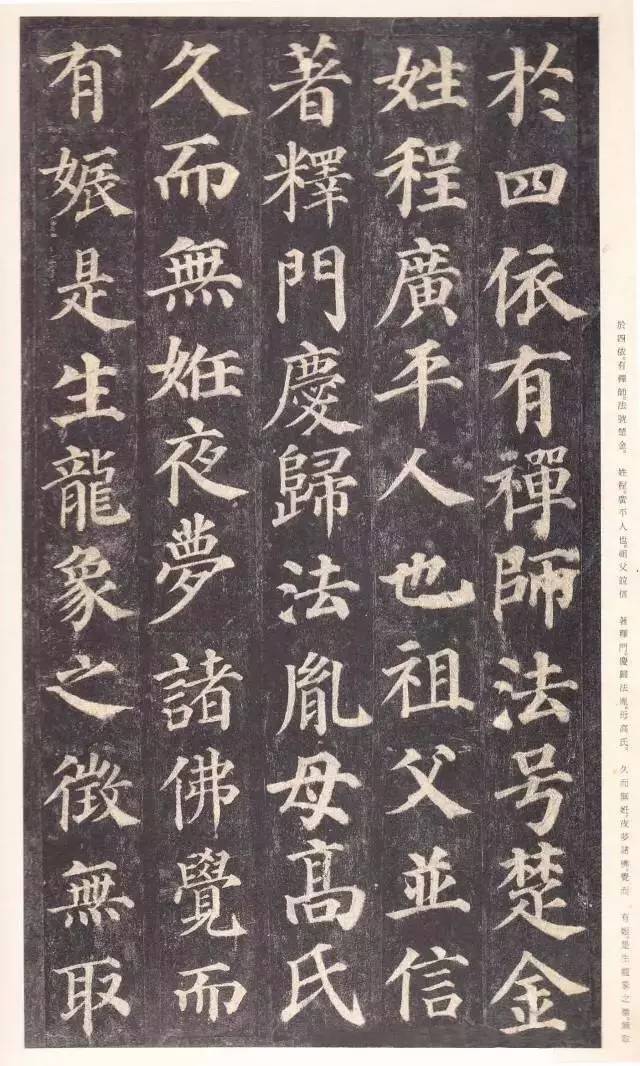 於四依有禪師法号楚金
姓程廣平人也祖父並信
著釋門慶歸法胤母髙氏
久而無姙夜夢諸佛覺而
有娠是生龍象之徵無取
於四依。有禪師。法號楚金。 姓程。廣平人也。祖父竝信 著釋門。慶歸法胤。母高氏。 久而無姙。夜夢諸佛。覺而 有娠。是生龍象之徵。無取